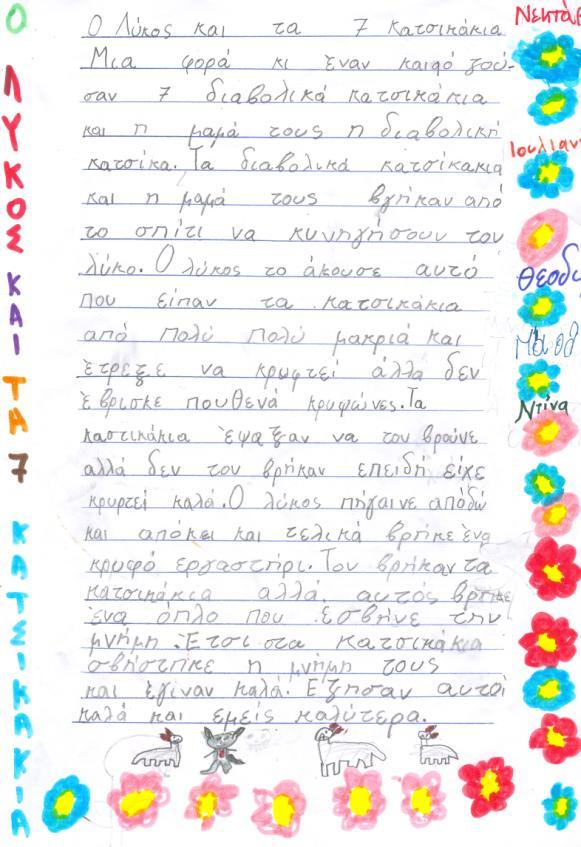 Ο ΛΥΚΟΣ ΚΑΙ ΤΑ 7 ΚΑΤΣΙΚΑΚΙΑ
Ο Λύκος και τα 7 κατσικάκια
Μια φορά κι έναν καιρό ζού-
σαν 7 διαβολικά κατσικάκια
και η μαμά τους η διαβολική
κατσίκα. Τα διαβολικά κατσίκακια
και η μαμά τους βγήκαν από
το σπίτι να κυνηγήσουν τον
λύκο. Ο λύκος το άκουσε αυτό
που είπαν τα κατσικάκια
από πολύ πολύ μακριά και
έτρεξε να κρυφτεί άλλά δεν
έβρισκε πουθενά κρυψώνες. Τα
καστικάκια έψαξαν να τον βρούνε
αλλά δεν τον βρήκαν επειδή είχε
κρυφτεί καλά. Ο λύκος πήγαινε απόδώ
και απόκει και τελικά βρήκε ένα
κρυφό εργαστήρι. Τον βρήκαν τα
κατσικάκια αλλά αυτός βρήκε
ένα όπλο που έσβηνε την
μνήμη. Έτσι στα κατσικάκια
σβήστηκε η μνήμη τους
και έγιναν καλά. Έζησαν αυτοί
καλά και εμείς καλύτερα.
Ντίνα